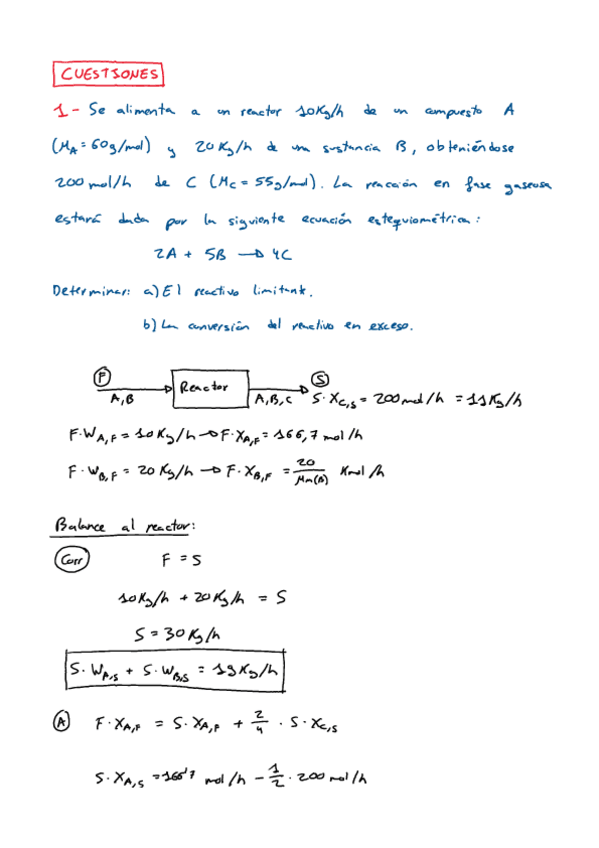 CUESTIONES
1- Se alimenta a un reactor 10Kg/h de un compuesto A
(MA = 60g/mol) y 20 Kg/h de una sustancia B, obteniéndose
200 mol/h de C (Mc = 55g/mol). La reacción en fase gaseosa
estará dada por la siguiente ecuación estequiométrica:
2A + 5B → 4C
Determinar: a) El reactivo limitante.
b) La conversión del reactivo en exceso.
F A,B Reactor A,B,C S S·Xc,s = 200 mol/h = 11Kg/h
F·WA,F = 10 Kg/h → F·XA,F = 166,7 mol/h
F·WB,F = 20 Kg/h → F·XB,F = 20/Mm(B) Kmol/h
Balance al reactor:
Corr F = S
10Kg/h + 20Kg/h = S
S = 30 Kg/h
S·WA,S + S·WB,S = 19Kg/h
A F·XA,F = S·XA,F + 2/4 · S·Xc,s
S·XA,S = 166'7 mol/h - 1/2 · 200 mol/h